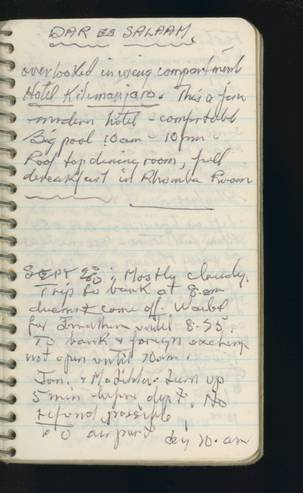 DAR ES SALAAM
overlooked in wrong compartment
Hotel Kilimanjaro. This a fine
modern hotel - comfortable
Big pool 10am - 10pm.
Roof top dining room, full
breakfast in Rhomba Room
SEPT : Mostly cloudy.
Trip to bank at 8.am
doesn't come off. Waited
for Jonathan until 8-35.
To bank & foreign exchange
not open until 10am.
Jon. & Matilda turn up
5 min before dept. No
refund possible
to airport 10. am